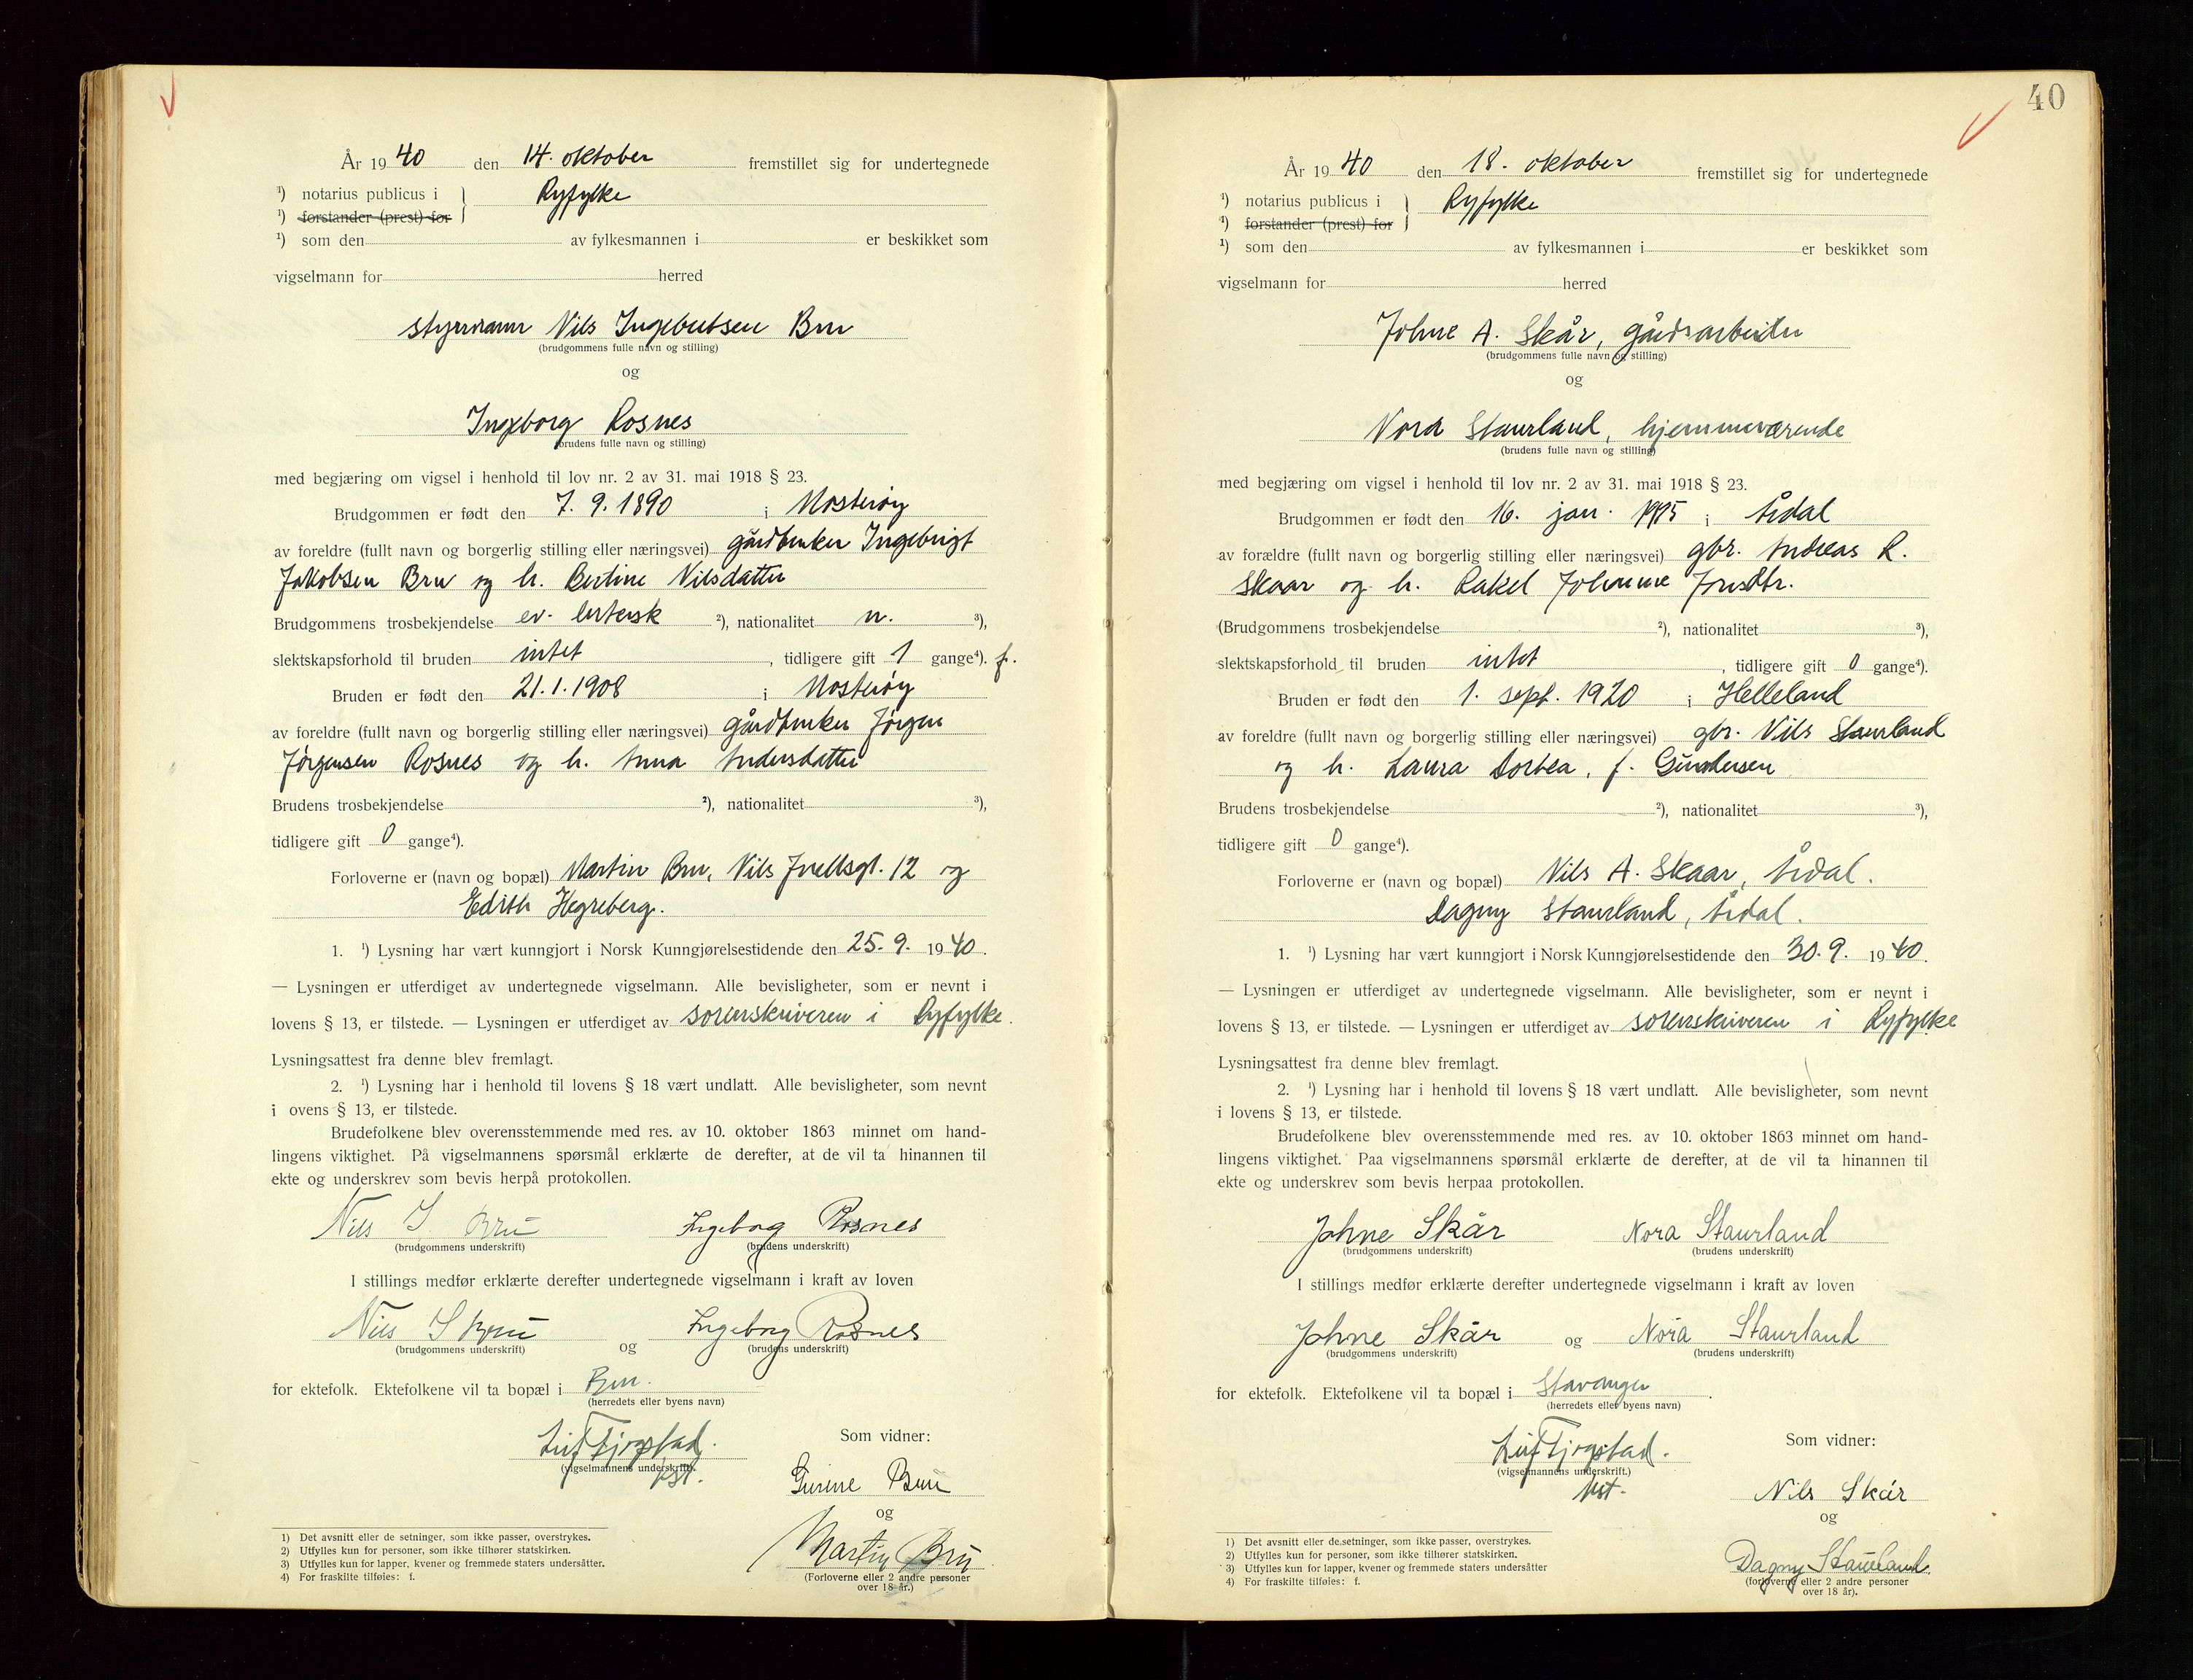 År 19 40 den 14. oktober fremstillet sig for undertegnede
¹) notarius publicus i } Ryfylke
¹) forstander (prest) for
¹) som den av fylkesmannen i er beskikket som
vigselmann for herred
styrmann Nils Ingebretsen Bru
(brudgommens fulle navn og stilling)
og
Ingeborg Rosnes
(brudens fulle navn og stilling)
med begjæring om vigsel i henhold til lov nr. 2 av 31. mai 1918 § 23.
Brudgommen er født den 7. 9. 1890 i Mosterøy
av foreldre (fullt navn og borgerlig stilling eller næringsvei) gårdbruker Ingebrigt
Jakobsen Bru og h. Bertine Nilsdatter
Brudgommens trosbekjendelse ev. lutersk ²), nationalitet n. ³),
slektskapsforhold til bruden intet , tidligere gift 1 gange⁴). f.
Bruden er født den 21. 1. 1908 i Mosterøy
av foreldre (fullt navn og borgerlig stilling eller næringsvei) gårdbruker Jørgen
Jørgensen Rosnes og h. Anna Andersdatter
Brudens trosbekjendelse ²), nationalitet ³),
tidligere gift 0 gange⁴).
Forloverne er (navn og bopæl) Martin Bru, Nils 12 og
Edith Hegreberg.
1. ¹) Lysning har vært kunngjort i Norsk Kunngjørelsestidende den 25. 9. 19 40.
— Lysningen er utferdiget av undertegnede vigselmann. Alle bevisligheter, som er nevnt i
lovens § 13, er tilstede. — Lysningen er utferdiget av sorenskriveren i Ryfylke.
Lysningsattest fra denne blev fremlagt.
2. ¹) Lysning har i henhold til lovens § 18 vært undlatt. Alle bevisligheter, som nevnt
i ovens § 13, er tilstede.
Brudefolkene blev overensstemmende med res. av 10. oktober 1863 minnet om hand-
lingens viktighet. På vigselmannens spørsmål erklærte de derefter, at de vil ta hinannen til
ekte og underskrev som bevis herpå protokollen.
Nils I. Bru Ingeborg Rosnes
(brudgommens underskrift) (brudens underskrift)
I stillings medfør erklærte derefter undertegnede vigselmann i kraft av loven
Nils I Bru og Ingeborg Rosnes
(brudgommens underskrift) (brudens underskrift)
for ektefolk. Ektefolkene vil ta bopæl i Bru.
(herredets eller byens navn)
Leif Tjogstad.
(vigselmannens underskrift).
Som vidner:
Bru
og
Martin Bru
(Forloverne eller 2 andre personer
over 18 år.)
1) Det avsnitt eller de setninger, som ikke passer, overstrykes.
2) Utfylles kun for personer, som ikke tilhører statskirken.
3) Utfylles kun for lapper, kvener og fremmede staters undersåtter.
4) For fraskilte tilføies: f.
40
År 19 40 den 18. oktober fremstillet sig for undertegnede
¹) notarius publicus i } Ryfylke
¹) forstander (prest) for
¹) som den av fylkesmannen i er beskikket som
vigselmann for herred
Johne A. Skår, gårdsarbeider
(brudgommens fulle navn og stilling)
og
Nora Staurland, hjemmeværende
(brudens fulle navn og stilling)
med begjæring om vigsel i henhold til lov nr. 2 av 31. mai 1918 § 23.
Brudgommen er født den 16. jan. 1915 i Årdal
av forældre (fullt navn og borgerlig stilling eller næringsvei) gbr. Andreas R.
Skaar og h. Rakel Johanne
(Brudgommens trosbekjendelse ²), nationalitet ³),
slektskapsforhold til bruden intet , tidligere gift 0 gange⁴).
Bruden er født den 1. sept. 1920 i Helleland
av foreldre (fullt navn og borgerlig stilling eller næringsvei) gbr. Nils Staurland
og h. Laura Dorthea, f. Gundersen
Brudens trosbekjendelse ²), nationalitet ³),
tidligere gift 0 gange⁴).
Forloverne er (navn og bopæl) Nils A. Skaar, Årdal.
Dagny Staurland, Årdal.
1. ¹) Lysning har vært kunngjort i Norsk Kunngjørelsestidende den 30. 9. 19 40.
— Lysningen er utferdiget av undertegnede vigselmann. Alle bevisligheter, som er nevnt i
lovens § 13, er tilstede. — Lysningen er utferdiget av sorenskriveren i Ryfylke
Lysningsattest fra denne blev fremlagt.
2. ¹) Lysning har i henhold til lovens § 18 vært undlatt. Alle bevisligheter, som nevnt
i lovens § 13, er tilstede.
Brudefolkene blev overensstemmende med res. av 10. oktober 1863 minnet om hand-
lingens viktighet. Paa vigselmannens spørsmål erklærte de derefter, at de vil ta hinannen til
ekte og underskrev som bevis herpaa protokollen.
Johne Skår Nora Staurland
(brudgommens underskrift) (brudens underskrift)
I stillings medfør erklærte derefter undertegnede vigselmann i kraft av loven
Johne Skår og Nora Staurland
(brudgommens underskrift) (brudens underskrift)
for ektefolk. Ektefolkene vil ta bopæl i Stavanger .
(herredets eller byens navn)
Leif Tjogstad.
(vigselmannens underskrift.)
Som vidner:
Nils Skår
og
Dagny Staurland
(forloverne eller 2 andre personer
over 18 år).
1) Det avsnitt eller de setninger, som ikke passer, overstrykes.
2) Utfylles kun for personer, som ikke tilhører statskirken.
3) Utfylles kun for lapper, kvener og fremmede staters undersåtter
4) For fraskilte tilføies: f.